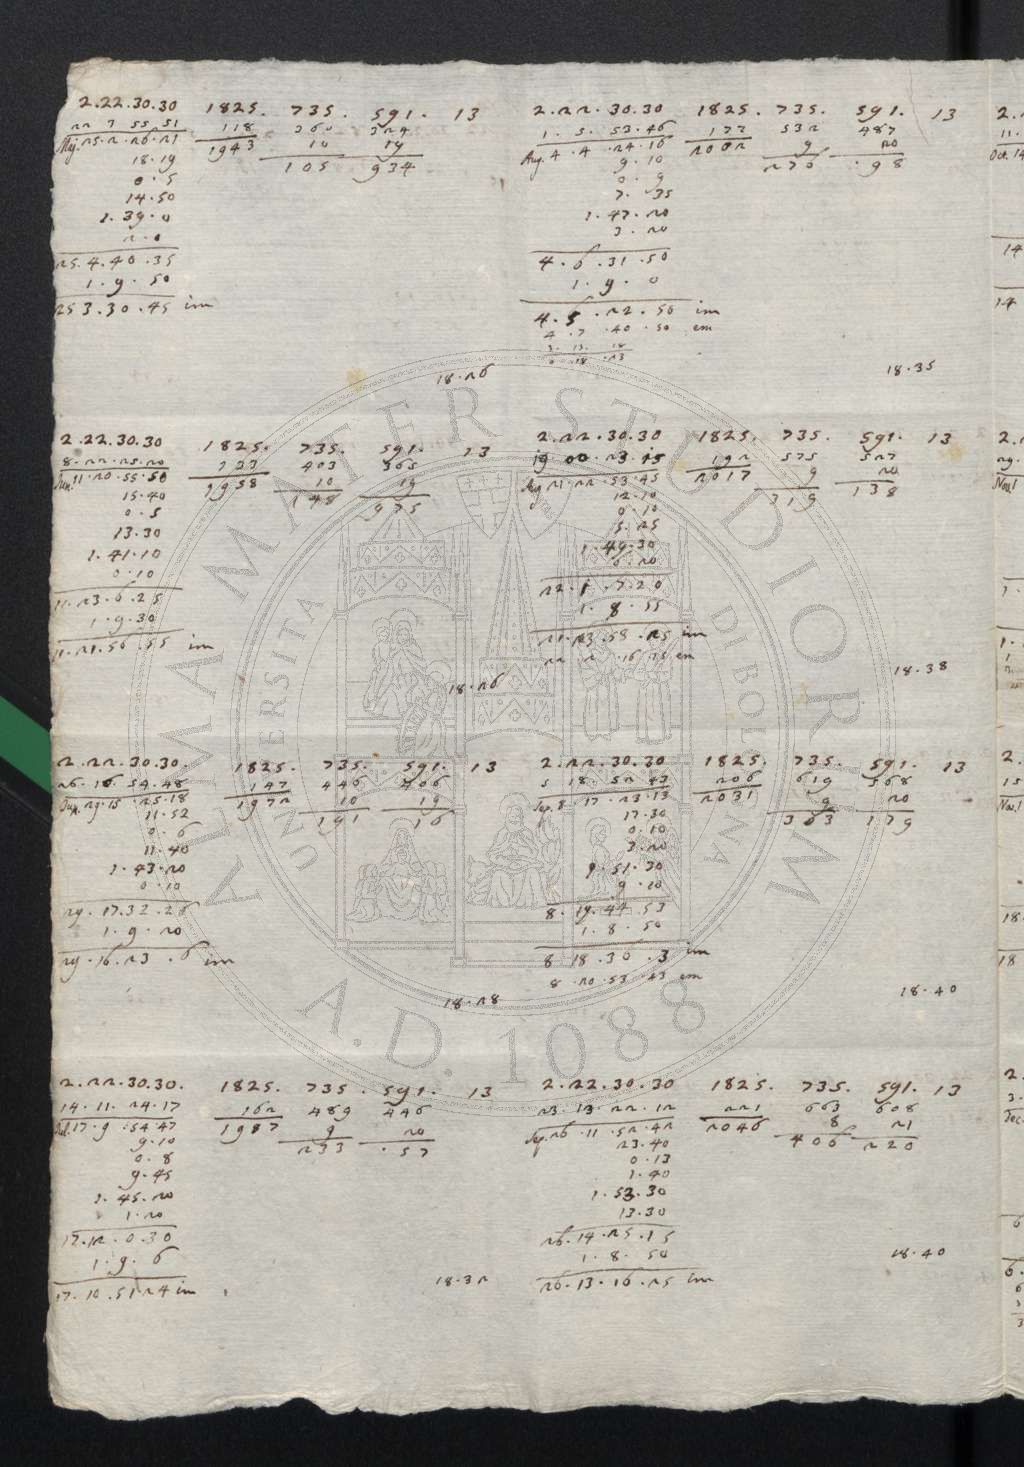 2.22.30.30 1825. 735. 591. 13
22 7 55.51 118 360 324
Maj. 25.2.26.21 1943 10 19
18.19 105 934
0.5
14.50
1.39.0
2.0
25.4.40.35
1.9.50
25 3.30.45 im
18.26
2.22.30.30 1825. 735. 591. 13
8.22.25.20 133 403 365
Jun. 11.20.55.50 1958 10 19
15.40 148 975
0.5
13.30
1.41.10
0.10
11.23.6.25
1.9.30
11.21.56.55 im
18.26
2.22.30.30. 1825. 735. 591. 13
26.16 54.48 147 446 406
Jun. 29.15.25.18 1972 10 19
11.52 191 16
0.6
11.40
1.43.20
0.10
29.17.32.26
1.9.20
29.16.23.6 im
18.28
2.22.30.30. 1825. 735. 591. 13
14.11.24.17 162 489 446
Jul. 17.9.54.47 1987 9 20
9.10 233 .57
0.8
9.45
1.45.20
1.20
17.12.0.30
1.9.6
17.10.51 24 im
18.32
2.22.30.30 1825. 735. 591. 13
1.5.53.46 177 532 487
Aug. 4.4.24.16 2002 9 20
9.10 276 .98
0.9
7.35
1.47.20
3.20
4.6.31.50
1.9.0
4.5.22.50 im
4.7.40.50 em
3.13.18
18.23
18.35
2.22.30.30 1825. 735. 591. 13
19.00.23.15 192 575 527
Aug 21.22.53.45 2017 9 20
12.10 319 138
0.10
5.25
1.49.30
0.20
22.1.7.20
1.8.55
21.23.58.25 im
18.38
2.22.30.30 1825. 735. 591. 13
5 18.52 43 206 619 568
Sep. 8.17.23.13 2031 9 20
17.30 363 179
0.10
3.20
1.51.30
9.10
8.19.44.53
1.8.50
8 18.36.3 im
8 20.53.43 em
18.40
2.22.30.30 1825. 735. 591. 13
23.13.22.12 221 663 608
Sep. 26.11.52.42 2046 8 21
23.40 406 220
0.13
1.40
1.53.30
13.30
26.14.25.15
1.8.50
26.13.16.25 im
18.40
ALMA MATER STUDIORUM
A.D. 1088